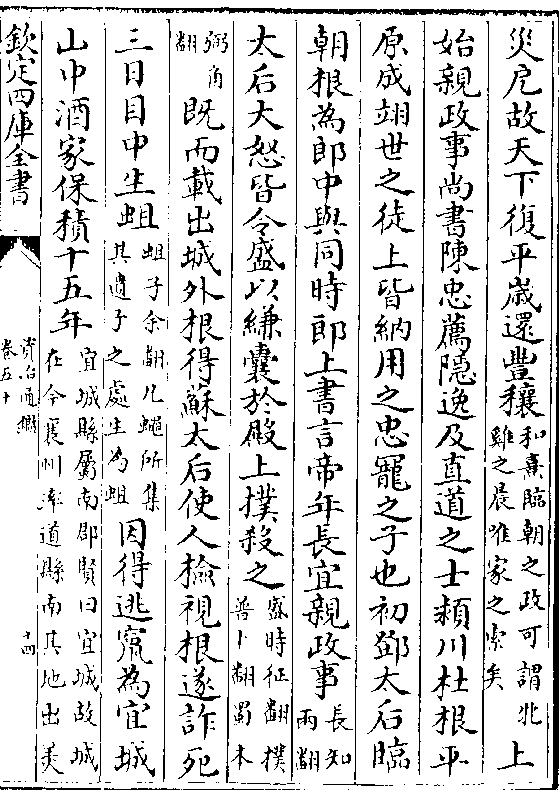 災戹故天下復平歲還豐穰和熹臨朝之政可謂牝雞之晨唯家之索矣上
始親政事尚書陳忠薦隱逸及直道之士潁川杜根平
原成翊世之徒上皆納用之忠寵之子也初鄧太后臨
朝根為郎中與同時郎上書言帝年長宜親政事長知兩翻
太后大怒皆令盛以縑囊於殿上撲殺之盛時征翻撲普卜翻蜀本
弼角翻既而載出城外根得蘇太后使人檢視根遂詐死
三日目中生蛆蛆子余翻凡蠅所集其遺子之處生為蛆因得逃竄為宜城
山中酒家保積十五年宜城縣屬南郡賢曰宜城故城在今襄州率道縣南其地出美
欽定四庫全書
資治通鑑
卷五十
十四